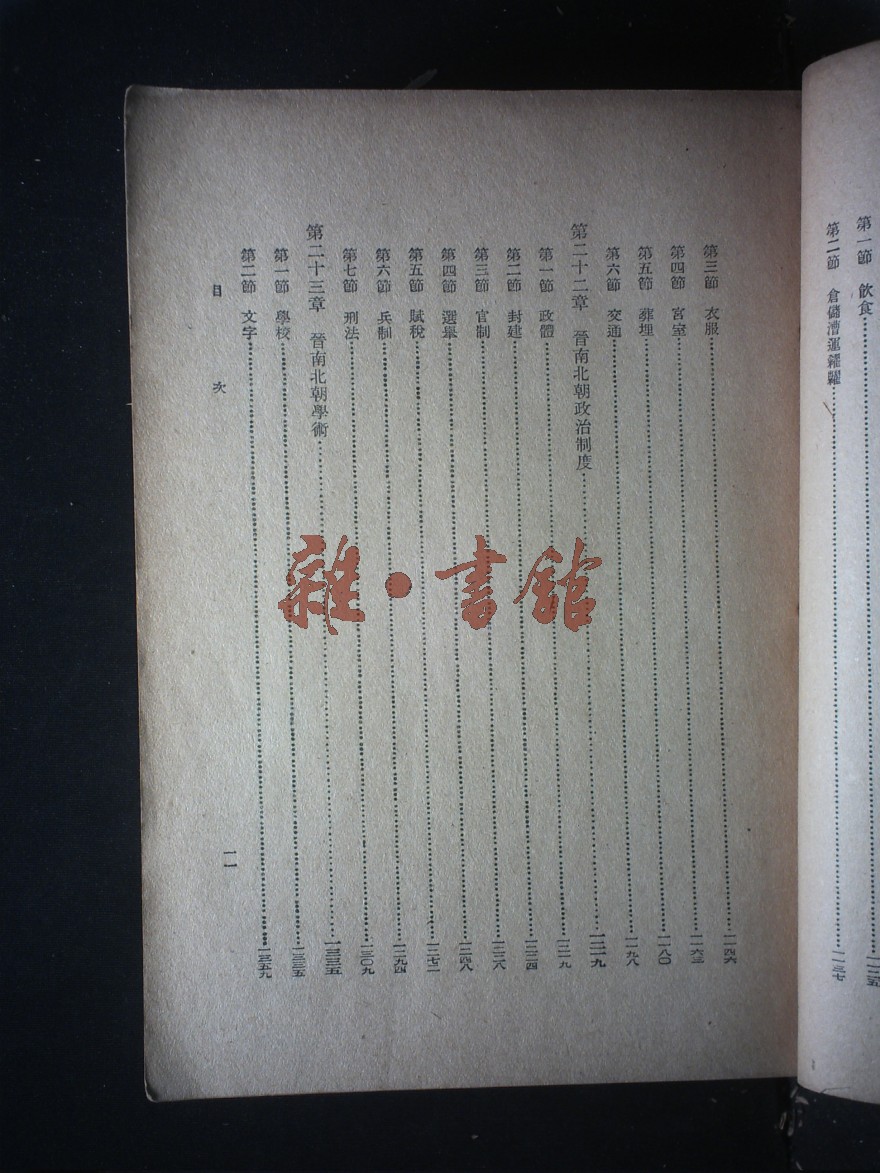 第一節 飲食………一一三五
第二節 倉儲漕運糴糶………一一三七
第三節 衣服………一一四六
第四節 宮室………一一六三
第五節 葬埋………一一八〇
第六節 交通………一一九八
第二十二章 晉南北朝政治制度………一二一九
第一節 政體………一二一九
第二節 封建………一二二四
第三節 官制………一二二八
第四節 選舉………一二四八
第五節 賦稅………一二七二
第六節 兵制………一二九四
第七節 刑法………一三〇九
第二十三章 晉南北朝學術………一三三五
第一節 學校………一三三五
第二節 文字………一三五九
目次
一一
雜・書館